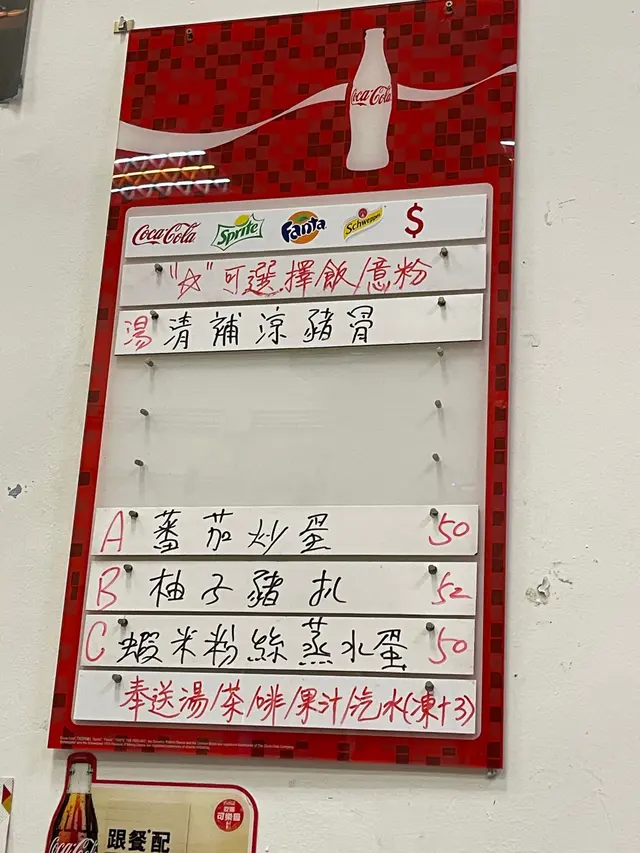 Coca-Cola
Coca-Cola Sprite Fanta Schweppes $
"☆"可選擇飯/意粉
湯 清補涼豬骨
A 蕃茄炒蛋 50
B 柚子豬扒 52
C 蝦米粉絲蒸水蛋 50
奉送湯/茶/啡/果汁/汽水(凍+3)
跟餐配
可樂
Coca-Cola